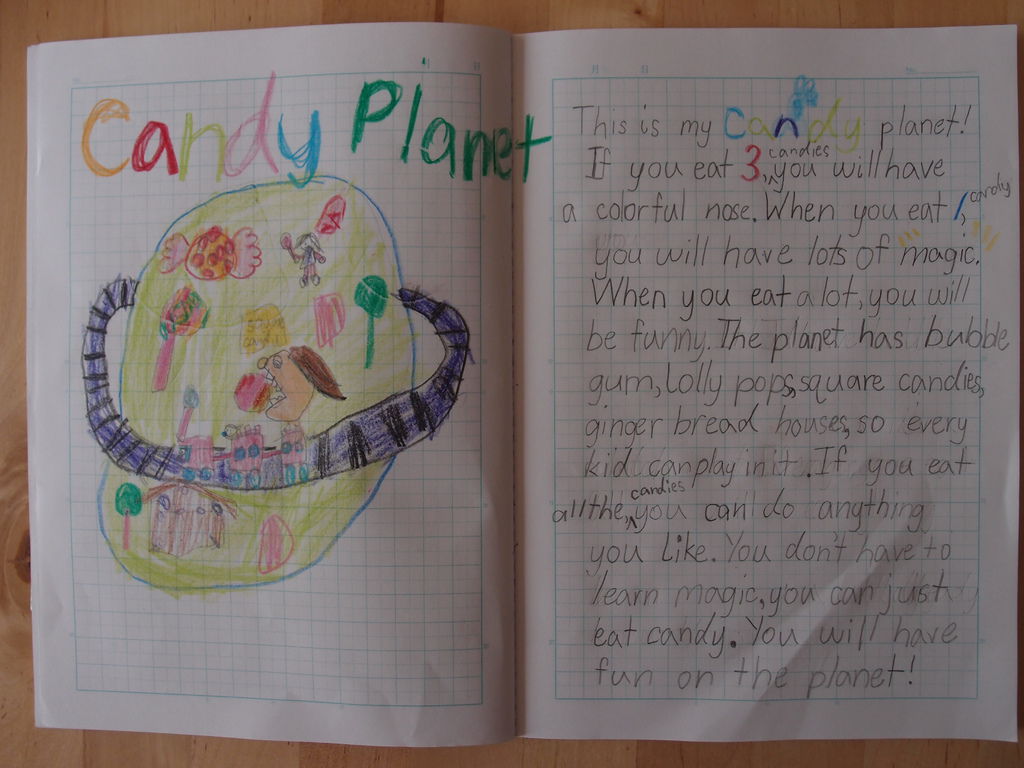 Candy Planet
This is my candy planet!
If you eat 3 candies, you will have
a colorful nose. When you eat 1 candy,
you will have lots of magic.
When you eat a lot, you will
be funny. The planet has bubble
gum, lolly pops, square candies,
ginger bread houses, so every
kid can play in it. If you eat
all the candies, you can do angthing
you like. You don't have to
learn magic, you can just
eat candy. You will have
fun on the planet!